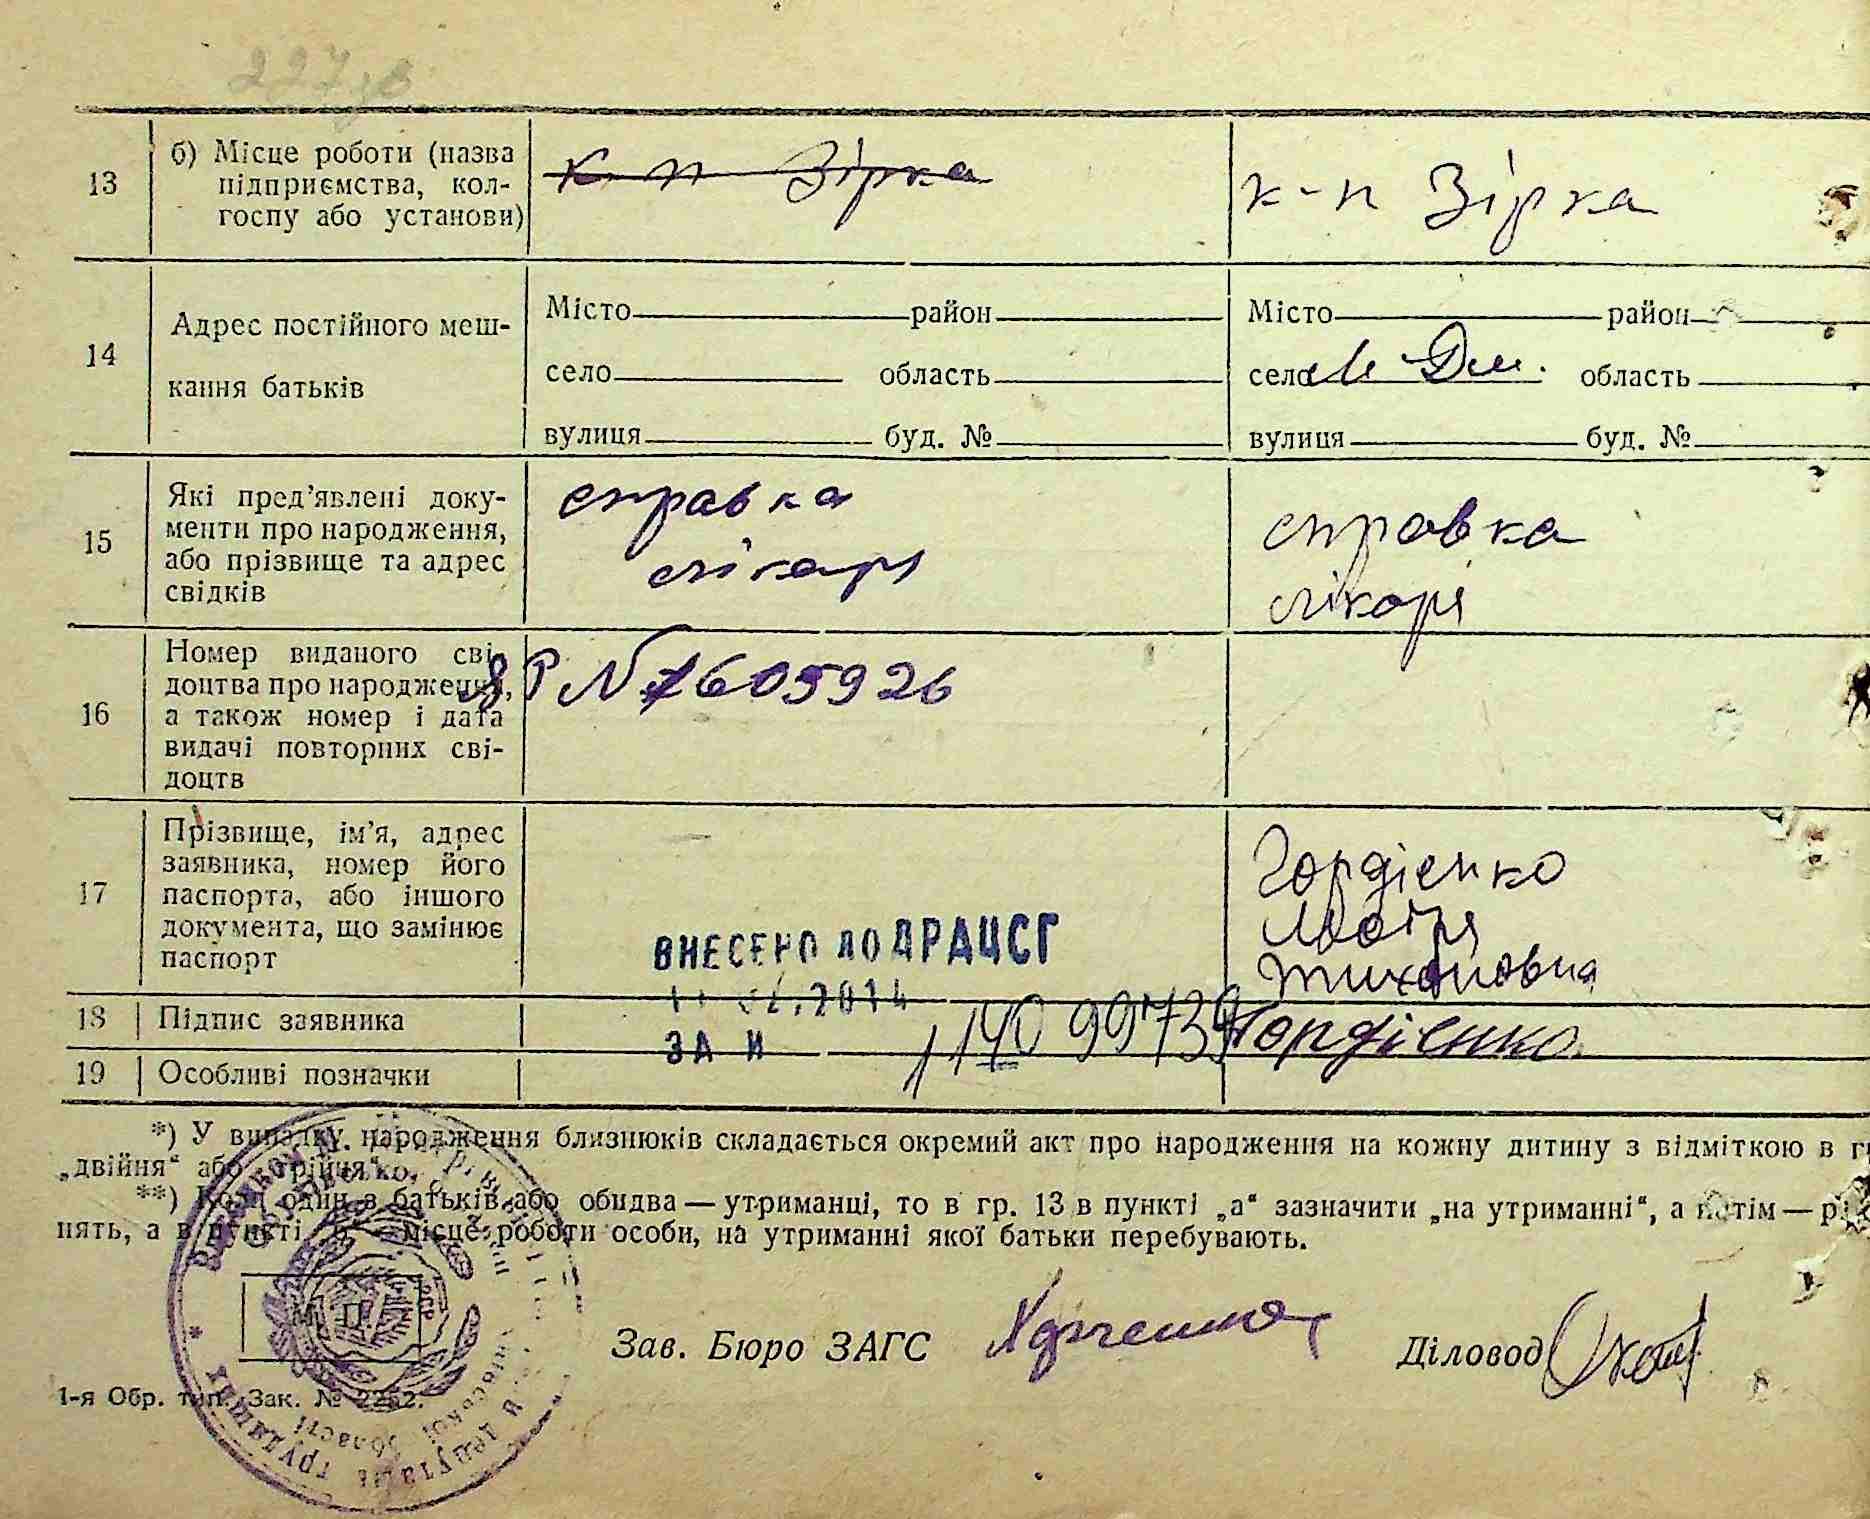 227зв
13
б) Місце роботи (назва
підприємства, кол-
госпу або установи)
к-п Зірка
к-п Зірка
14
Адрес постійного меш-
кання батьків
Місто район
село область
вулиця буд. №
Місто район
село М Дм. область
вулиця буд. №
15
Які пред’явлені доку-
менти про народження,
або прізвище та адрес
свідків
справка
лікаря
справка
лікаря
16
Номер виданого сві-
доцтва про народження,
а також номер і дата
видачі повторних сві-
доцтв
ЯР № 1605926
17
Прізвище, ім’я, адрес
заявника, номер його
паспорта, або іншого
документа, що замінює
паспорт
Гордієнко
Мотря
Тихоновна
ВНЕСЕНО ДО ДРАЦСГ
02.2014
ЗА №
18
Підпис заявника
Гордієнко
19
Особливі позначки
*) У випадку народження близнюків складається окремий акт про народження на кожну дитину з відміткою в
„двійня“ або „трійня“.
**) Коли один з батьків або обидва — утриманці, то в гр. 13 в пункті „а“ зазначити „на утриманні“, а потім —
нять, а в пункті „б“ — місце роботи особи, на утриманні якої батьки перебувають.
М. П.
Зав. Бюро ЗАГС
Діловод
1-я Обр. тип. Зак. № 2252.
депутатів трудящих
області